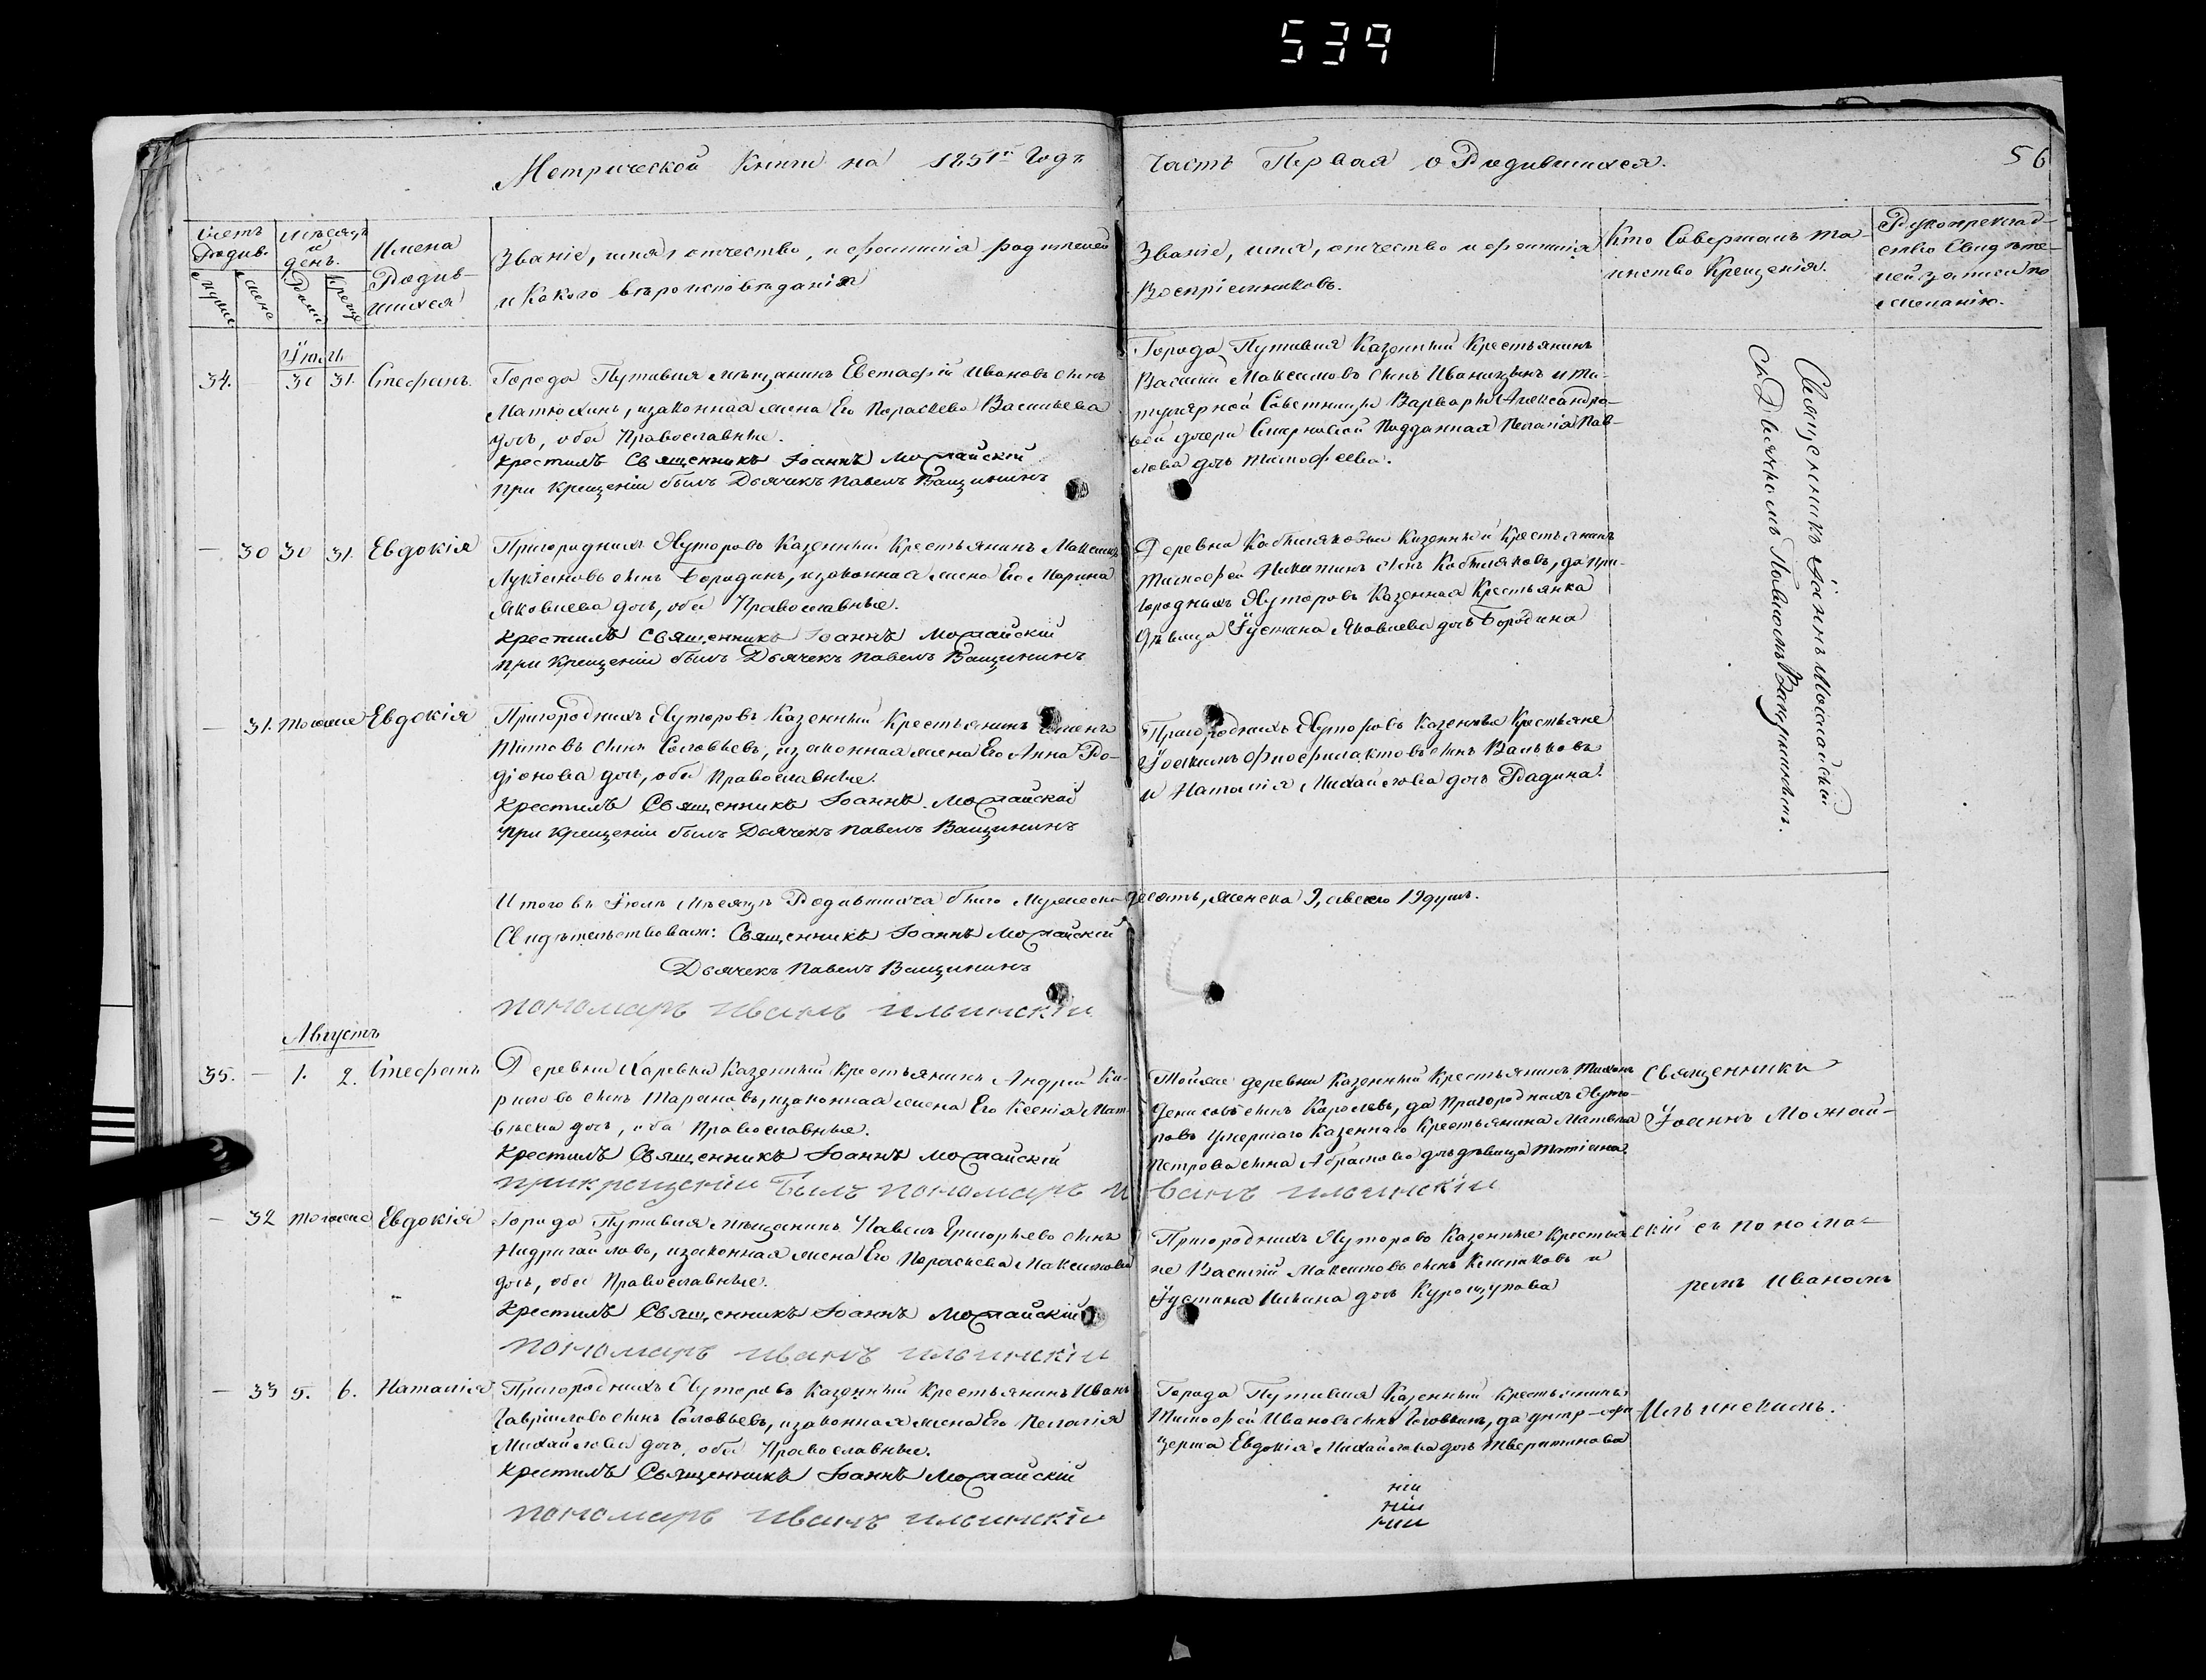 539
Метрической Книги на 1851й Годъ
Часть Первая о Родившихся.
56
Счетъ Родив.
мужеск
женс
Мѣсяцъ и день.
Рожд
Крещ
Имена
Родив-
шихся
Званіе, имя, отчество, и фамилія родителей
и какого вѣроисповѣданія
Званіе, имя, отчество и фамилія
Воспріемниковъ.
Кто Совершалъ та-
инство Крещенія.
Рукоприклад-
ство Свидѣте-
лей записи по
желанію.
Іюль
34. 30 31. Стефанъ.
Города Путивля мѣщанинъ Евстафій Ивановъ сынъ
Матюхинъ, изаконная жена Его Параскева Васильева
дочь, оба Православные.
Крестилъ Священникъ Іоаннъ Можайскій
при Крещеніи былъ Дьячекъ Павелъ Ващининъ
Города Путивля Казенный Крестьянинъ
Василій Максимовъ сынъ Иваницынъ и ти-
тулярной Совѣтницы Варвары Александро-
вой дочери Подданная Пелагія Пав-
лова дочь Тимофеева.
Священникъ Іоаннъ Можайскій
съ Дьячкомъ Павломъ Ващининымъ.
— 30 30 31. Евдокія
Пригородныхъ Хуторовъ Казенный Крестьянинъ Максимъ
Лукіановъ сынъ Бородинъ, изаконная жена Его Марина
Яковлева дочь, оба Православные.
Крестилъ Священникъ Іоаннъ Можайскій
при Крещеніи былъ Дьячекъ Павелъ Ващининъ
Деревни Казенный Крестьянинъ
Тимофей Никитинъ сынъ Кобыляковъ, да при-
городныхъ Хуторовъ Казенная Крестьянка
дѣвица Іустина Яковлева дочь Бородина
— 31. Тогоже Евдокія
Пригородныхъ Хуторовъ Казенный Крестьянинъ
Титовъ сынъ Соловьевъ, изаконная жена Его Анна Ро-
діонова дочь, оба Православные.
Крестилъ Священникъ Іоаннъ Можайскій
при Крещеніи былъ Дьячекъ Павелъ Ващининъ
Пригородныхъ Хуторовъ Казенные Крестьяне
Іоакимъ Феофилактовъ сынъ Вальковъ
и Наталія Михайлова дочь Радина.
Итого въ Іюлѣ Мѣсяцѣ Родившихся было Мужеска десять, женска 9, авсего 19 душъ.
Свидѣтельствовали: Священникъ Іоаннъ Можайскій
Дьячекъ Павелъ Ващининъ
пономарь иванъ ильинскіи
Августъ
35. — 1. 2. Стефанъ
Деревни Харевки Казенный Крестьянинъ Андрей Ки-
риловъ сынъ Тарановъ, изаконная жена Его Ксенія Мат-
вѣева дочь, оба Православные.
Крестилъ Священникъ Іоаннъ Можайскій
прикрещеніи былъ пономарь иванъ ильинскіи
Тойже деревни Казенный Крестьянинъ Тихонъ
Денисовъ сынъ Королевъ, да Пригородныхъ Хуто-
ровъ умершаго Казеннаго Крестьянина Матвѣя
Петрова сына Абрамова дочь дѣвица Татіана.
Священникъ
Іоаннъ Можай-
скій съ понома-
ремъ Иваномъ
Ильинскимъ.
— 32 Тогоже Евдокія
Города Путивля мѣщанинъ Павелъ Григорьевъ сынъ
Недригайловъ, изаконная жена Его Параскева Максимова
дочь, оба Православные.
Крестилъ Священникъ Іоаннъ Можайскій
пономарь иванъ ильинскіи
Пригородныхъ Хуторовъ Казенные Крестья-
не Василій Максимовъ сынъ и
Іустина Ильина дочь Курощупова
— 33 5. 6. Наталія
Пригородныхъ Хуторовъ Казенный Крестьянинъ Иванъ
Гавриловъ сынъ Соловьевъ, изаконная жена Его Пелагія
Михайлова дочь, оба Православные.
Крестилъ Священникъ Іоаннъ Можайскій
пономарь иванъ ильинскіи
Города Путивля Казенный Крестьянинъ
Тимофей Ивановъ сынъ Головинъ, да унтр-офи-
церша Евдокія Михайлова дочь Тверитинова
ніи
ніи
ніи